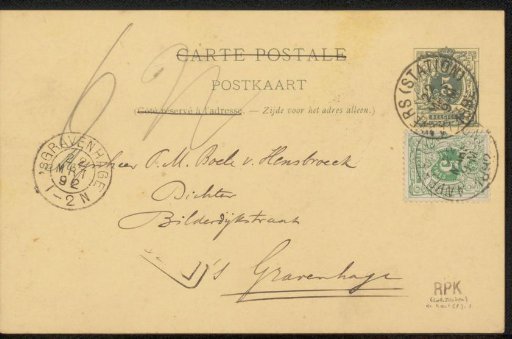 CARTE POSTALE
POSTKAART
(Côté réservé à l'adresse. — Zijde voor het adres alleen.)
(STATION)
5
5
'SGRAVENHAGE
92
1-2N
heer O. M. Boele v. Hensbroeck
Dichter
Bilderdijkstraat
's Gravenhage
RPK